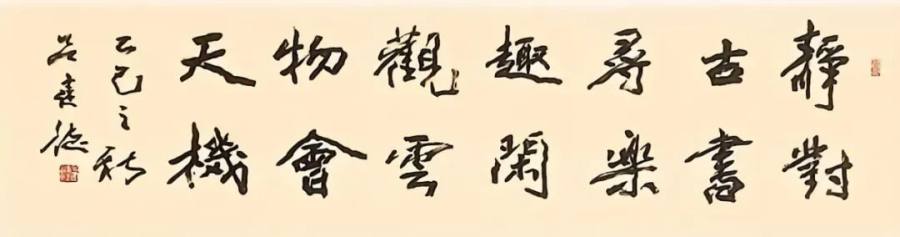 靜對
古書
尋樂
趣閑
觀雲
物會
天機
乙巳之秋